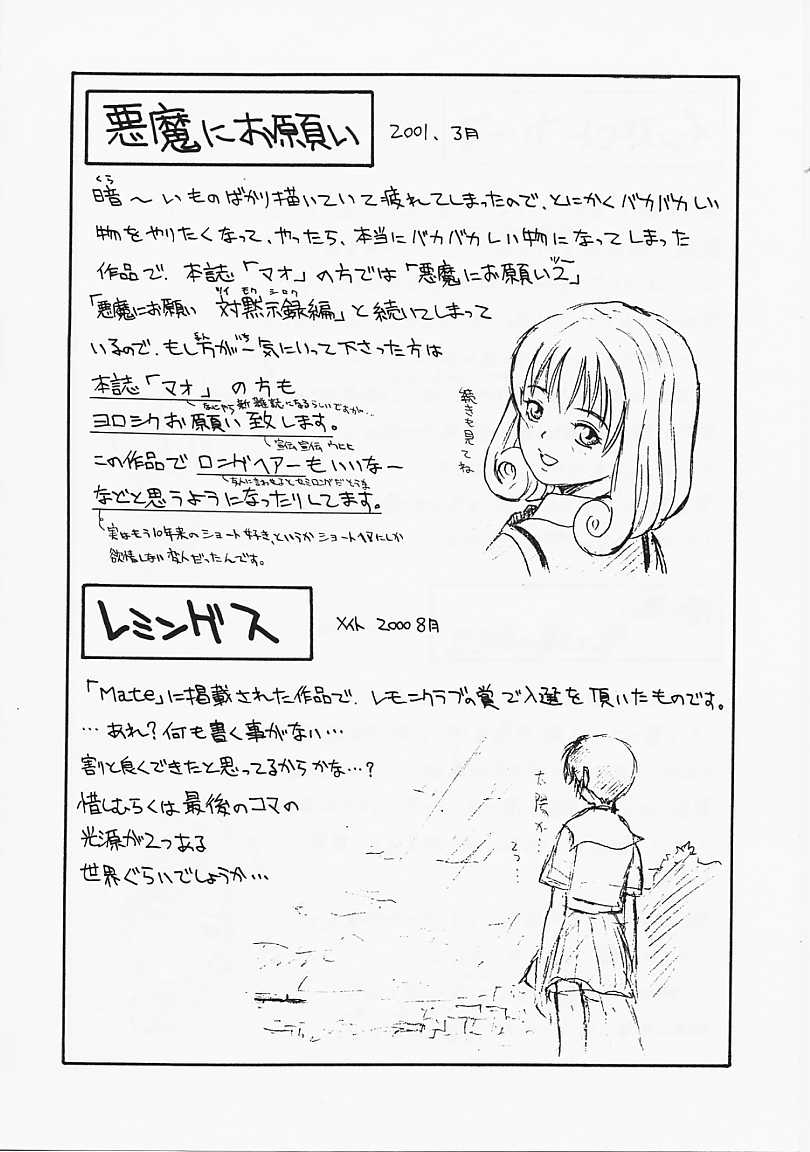 悪魔にお願い
2001、3月
くら
暗〜いものばかり描いていて疲れてしまったので、とにかくバカバカしい
物をやりたくなって、やったら、本当にバカバカしい物になってしまった
ツー
作品で、本誌「マオ」の方では「悪魔にお願い2」
ツイ モク シロク
「悪魔にお願い 対黙示録編」と続いてしまって
まん いち
いるので、もし万が一気にいって下さった方は
本誌「マオ」の方も
なにやら新雑誌になるらしいですが…
ヨロシクお願い致します。
宣伝宣伝 ウヒヒ
この作品でロングヘアーもいいなー
などと思うようになったりしてます。
実はもう10年来のショート好き、というかショートヘアにしか
欲情しない変人だったんです。
続きも見てね
レミングス
メイト 2000 8月
「Mate」に掲載された作品で、レモンクラブの賞で入選を頂いたものです。
…あれ?何も書く事がない…
割と良くできたと思ってるからかな…?
惜しむらくは最後のコマの
光源が2つある
世界ぐらいでしょうか…
太陽が…
2つ…